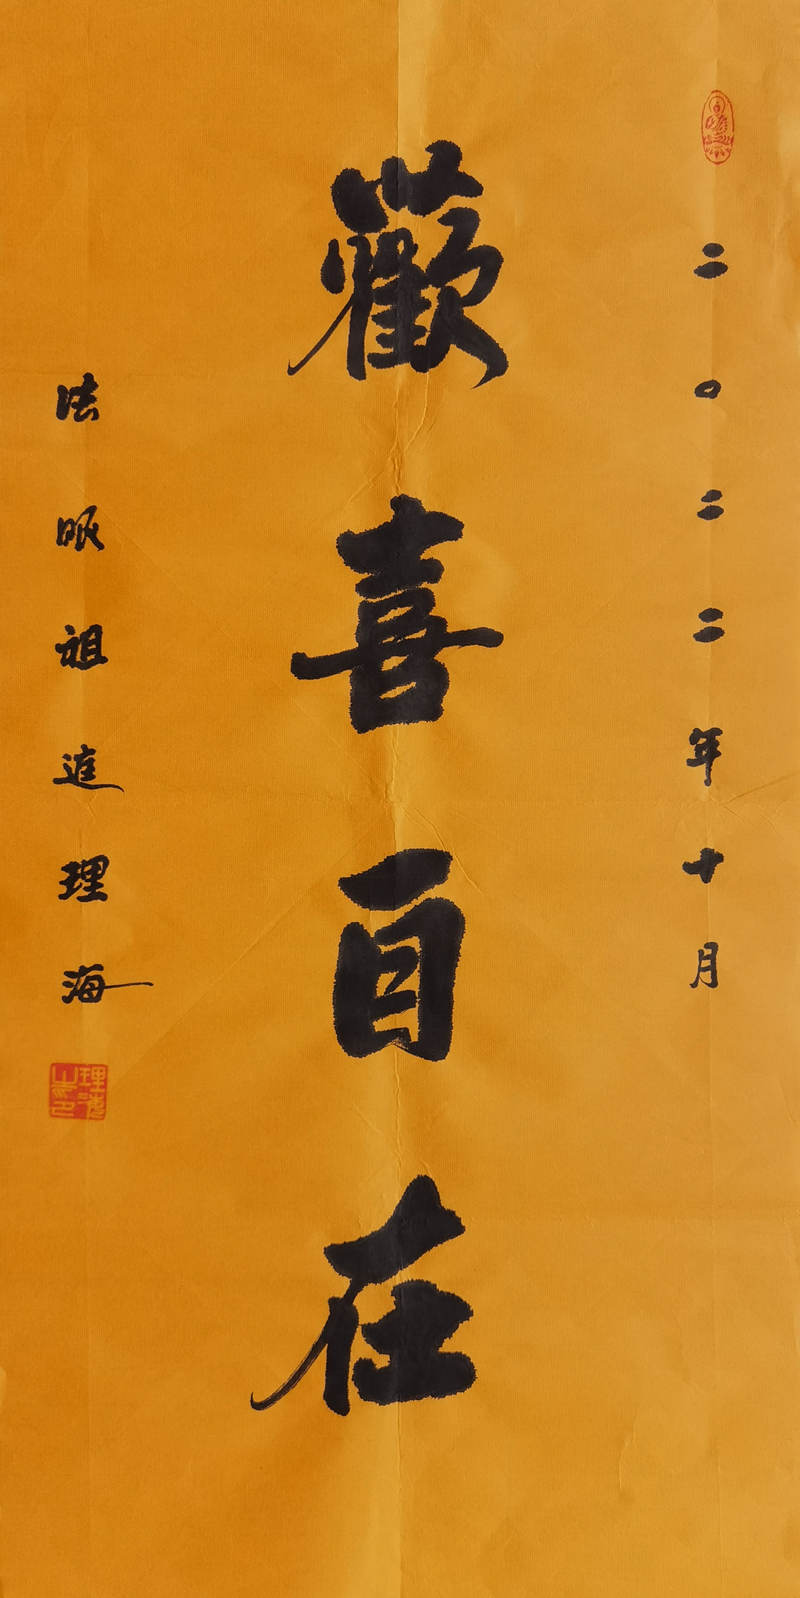 二〇二二年十月
歡喜自在
法眼祖庭理海
理海之印